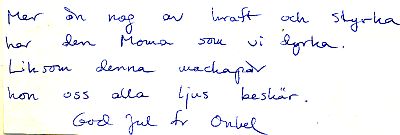 Mer än nog av kraft och styrka
har den Moma som vi dyrka.
Liksom denna mackapär
hon oss alla ljus beskär.
God Jul fr Onkel